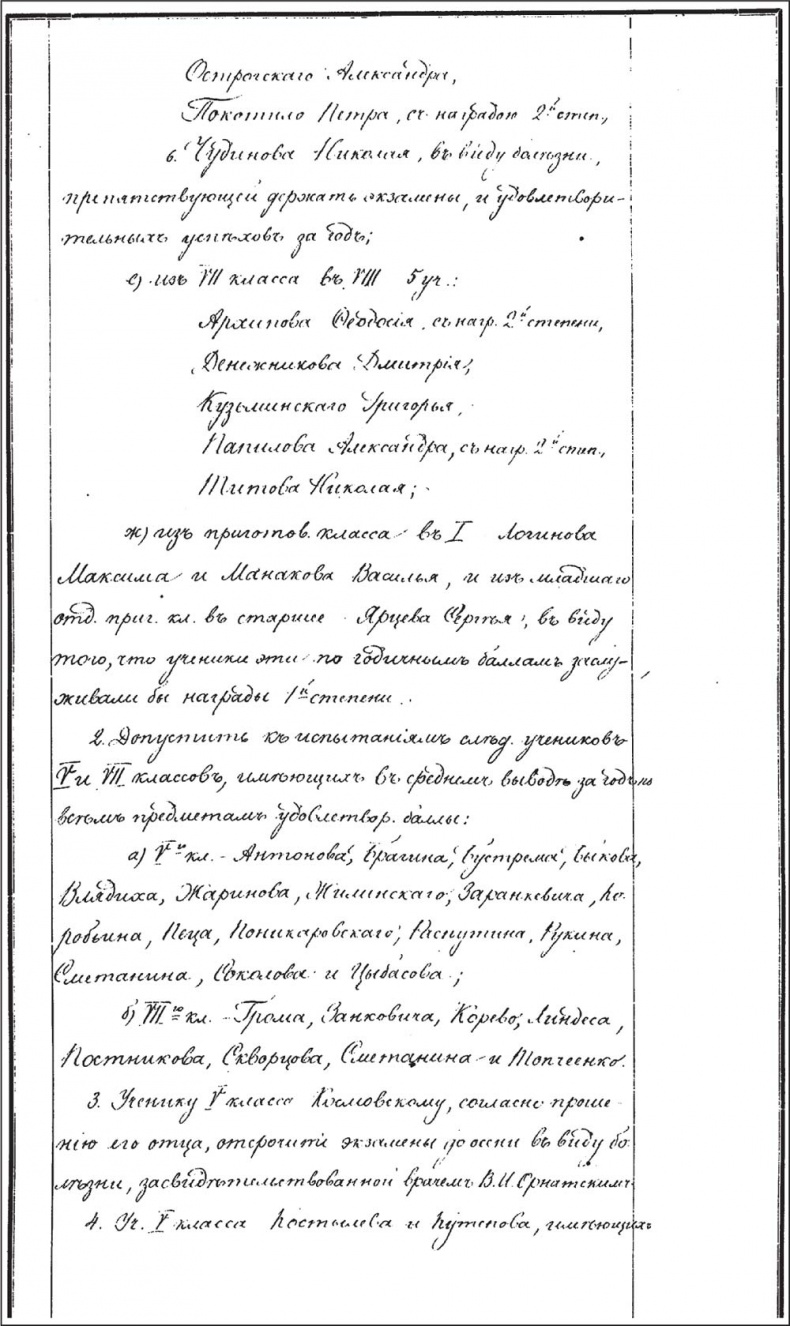 Острогскаго Александра,
Покотило Петра, съ наградою 2й степ.,
6. Чудинова Николая, въ виду болѣзни,
препятствующей держать экзамены, и удовлетвори-
тельныхъ успѣховъ за годъ;
е) изъ VII класса въ VIII 5 уч.:
Архипова Ѳеодосія, съ нагр. 2й степени,
Денежникова Дмитрія,
Кузьминскаго Григорья,
Папилова Александра, съ нагр. 2й степ.,
Титова Николая;
ж) изъ приготов. класса въ I Логинова
Максима и Манакова Василья, и изъ младшаго
отд. приг. кл. въ старшее Ярцева Сергѣя, въ виду
того, что ученики эти по годичнымъ балламъ заслу-
живали бы награды 1й степени.
2. Допустить къ испытаніямъ слѣд. учениковъ
V и VII классовъ, имѣющихъ въ среднемъ выводѣ за годъ по
всѣмъ предметамъ удовлетвор. баллы:
а) Vго кл. - Антонова, Брагина, Бустрема, Быкова,
Влядиха, Жаринова, Жилинскаго, Заранкевича, Ко-
робьина, Пеца, Поникаровскаго, Распутина, Рукина,
Сметанина, Соколова и Цыбасова;
б) VIIго кл. - Грома, Занковича, Корево, Линдеса,
Постникова, Скворцова, Сметанина и Топчеенко.
3. Ученику V класса Козловскому, согласно проше-
нію его отца, отсрочить экзамены до осени въ виду бо-
лѣзни, засвидѣтельствованной врачемъ В.И. Орнатскимъ.
4. Уч. V класса Костылева и Кутепова, имѣющихъ